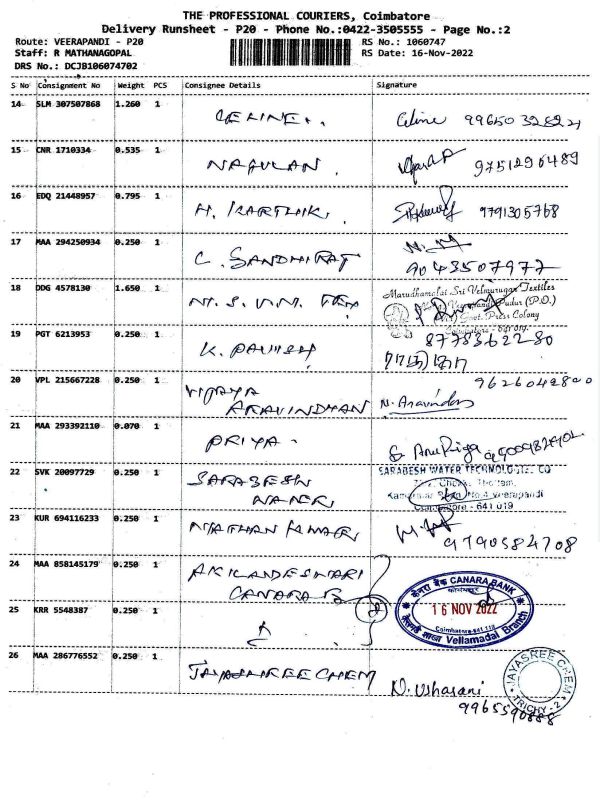 THE PROFESSIONAL COURIERS, Coimbatore
Delivery Runsheet - P20 - Phone No.:0422-3505555 - Page No.:2
Route: VEERAPANDI - P20
Staff: R MATHANAGOPAL
DRS No.: DCJB106074702
RS No.: 1060747
RS Date: 16-Nov-2022
S No Consignment No Weight PCS Consignee Details Signature
14 SLM 307507868 1.260 1 CELINE. Celine
15 CNR 1710334 0.535 1 NAGULAN. 9751296489
16 EDQ 21448957 0.795 1 H. KARTHIK. 9791305768
17 MAA 294250934 0.250 1 C. SANDHIRAT
9043507977
18 DDG 4578130 1.650 1 Marudhamalai Sri Velmurugan Textiles
Pudur (P.O.)
Govt. Press Colony
Coimbatore - 641 019.
19 PGT 6213953 0.250 1 K. 8778362280
20 VPL 215667228 0.250 1 VIJAYA
ARAVINDHAN N. Aravindan 9626042800
21 MAA 293392110 0.070 1 PRIYA.
22 SVK 20097729 0.250 1 SARABESH
WATER SARABESH WATER TECHNOLOGIES CO
Veerapandi
Coimbatore - 641 019
23 KUR 694116233 0.250 1 NATHAN KUMAR
9790584708
24 MAA 858145179 0.250 1 AKILANDESWARI
CANARA B
केनरा बैंक CANARA BANK
16 NOV 2022
Vellamadai Branch
25 KRR 5548387 0.250 1
26 MAA 286776552 0.250 1 JAYASHREE CHEM N. Usharani
JAYASREE CHEM
TRICHY-2
9965590888